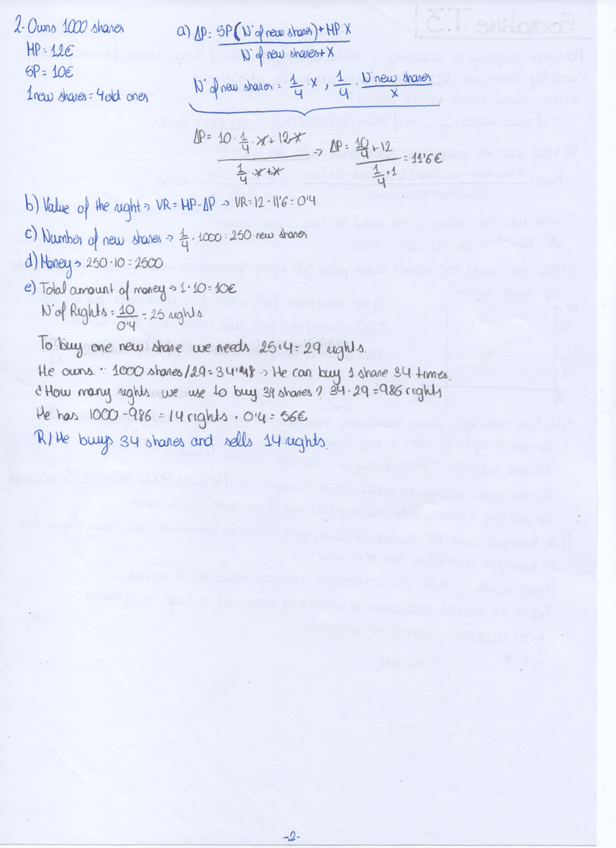 2. Owns 1000 shares
MP = 12€
SP = 10€
1 new shares = 4 old ones
a) ΔP = SP (Nº of new shares) + MP · X
Nº of new shares + X
Nº of new shares = 1/4 · X , 1/4 · N new shares / X
ΔP = 10 · 1/4 · x + 12 · x / 1/4 · x + x → ΔP = 10/4 + 12 / 1/4 + 1 = 11'6€
b) Value of the right → VR = MP - ΔP → VR = 12 - 11'6 = 0'4
c) Number of new shares → 1/4 · 1000 = 250 new shares
d) Money → 250 · 10 = 2500
e) Total amount of money → 1 · 10 = 10€
Nº of Rights = 10/0'4 = 25 rights.
To buy one new share we needs 25 + 4 = 29 rights.
He owns · 1000 shares/29 = 34'48 → He can buy 1 share 34 times.
¿How many rights we use to buy 34 shares? 34 · 29 = 986 rights
He has 1000 - 986 = 14 rights · 0'4 = 56€
R/ He buys 34 shares and sells 14 rights.
-2-